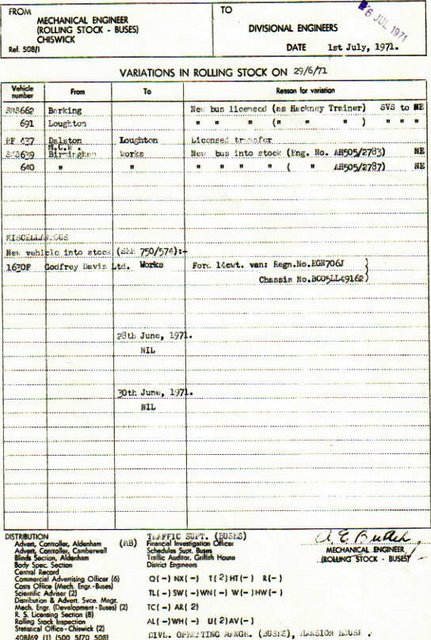 FROM
MECHANICAL ENGINEER
(ROLLING STOCK - BUSES)
CHISWICK
Ref. 508/1
TO
DIVISIONAL ENGINEERS
DATE 1st July, 1971.
6 JUL 1971
VARIATIONS IN ROLLING STOCK ON 29/6/71
Vehicle number From To Reason for variation
SMS662 Barking New bus licensed (as Hackney Trainer) SVS to NE
691 Loughton " " " ( " " ) " " "
RF 437 Dalston Loughton Licensed transfer
M.C.F.
SMS639 Birmingham Works New bus into stock (Eng. No. AH505/2783) NE
640 " " " " " " ( " AH505/2787) NE
MISCELLANEOUS
New vehicle into stock (SRR 750/574):-
1630F Godfrey Davis Ltd. Works Ford 14cwt. van: Regn.No.EGN706J
Chassis No.BC05LL49162)
28th June, 1971.
NIL
30th June, 1971.
NIL
DISTRIBUTION
Advert. Controller, Aldenham (HB)
Advert. Controller, Camberwell
Blinds Section, Aldenham
Body Spec. Section
Central Record
Commercial Advertising Officer (6)
Costs Office (Mech. Engr.-Buses)
Scientific Adviser (2)
Distribution & Advert. Svce. Mngr.
Mech. Engr. (Development - Buses) (2)
R. S. Licensing Section (8)
Rolling Stock Inspection
Statistical Office - Chiswick (2)
408/69 (1) (500 5/70 508)
TRAFFIC SUPT. (BUSES)
Financial Investigation Officer
Schedules Supt. Buses
Traffic Auditor, Griffith House
District Engineers
Q(-) NX(-) T(2)HT(-) R(-)
TL(-)SW(-)WN(-) W(-)HW(-)
TC(-) AR(2)
AL(-)WH(-) U(2)AV(-)
DIVL. OPERATING MANGR. (BUSES), MANSION HOUSE.
A E Butler
MECHANICAL ENGINEER
(ROLLING STOCK - BUSES)